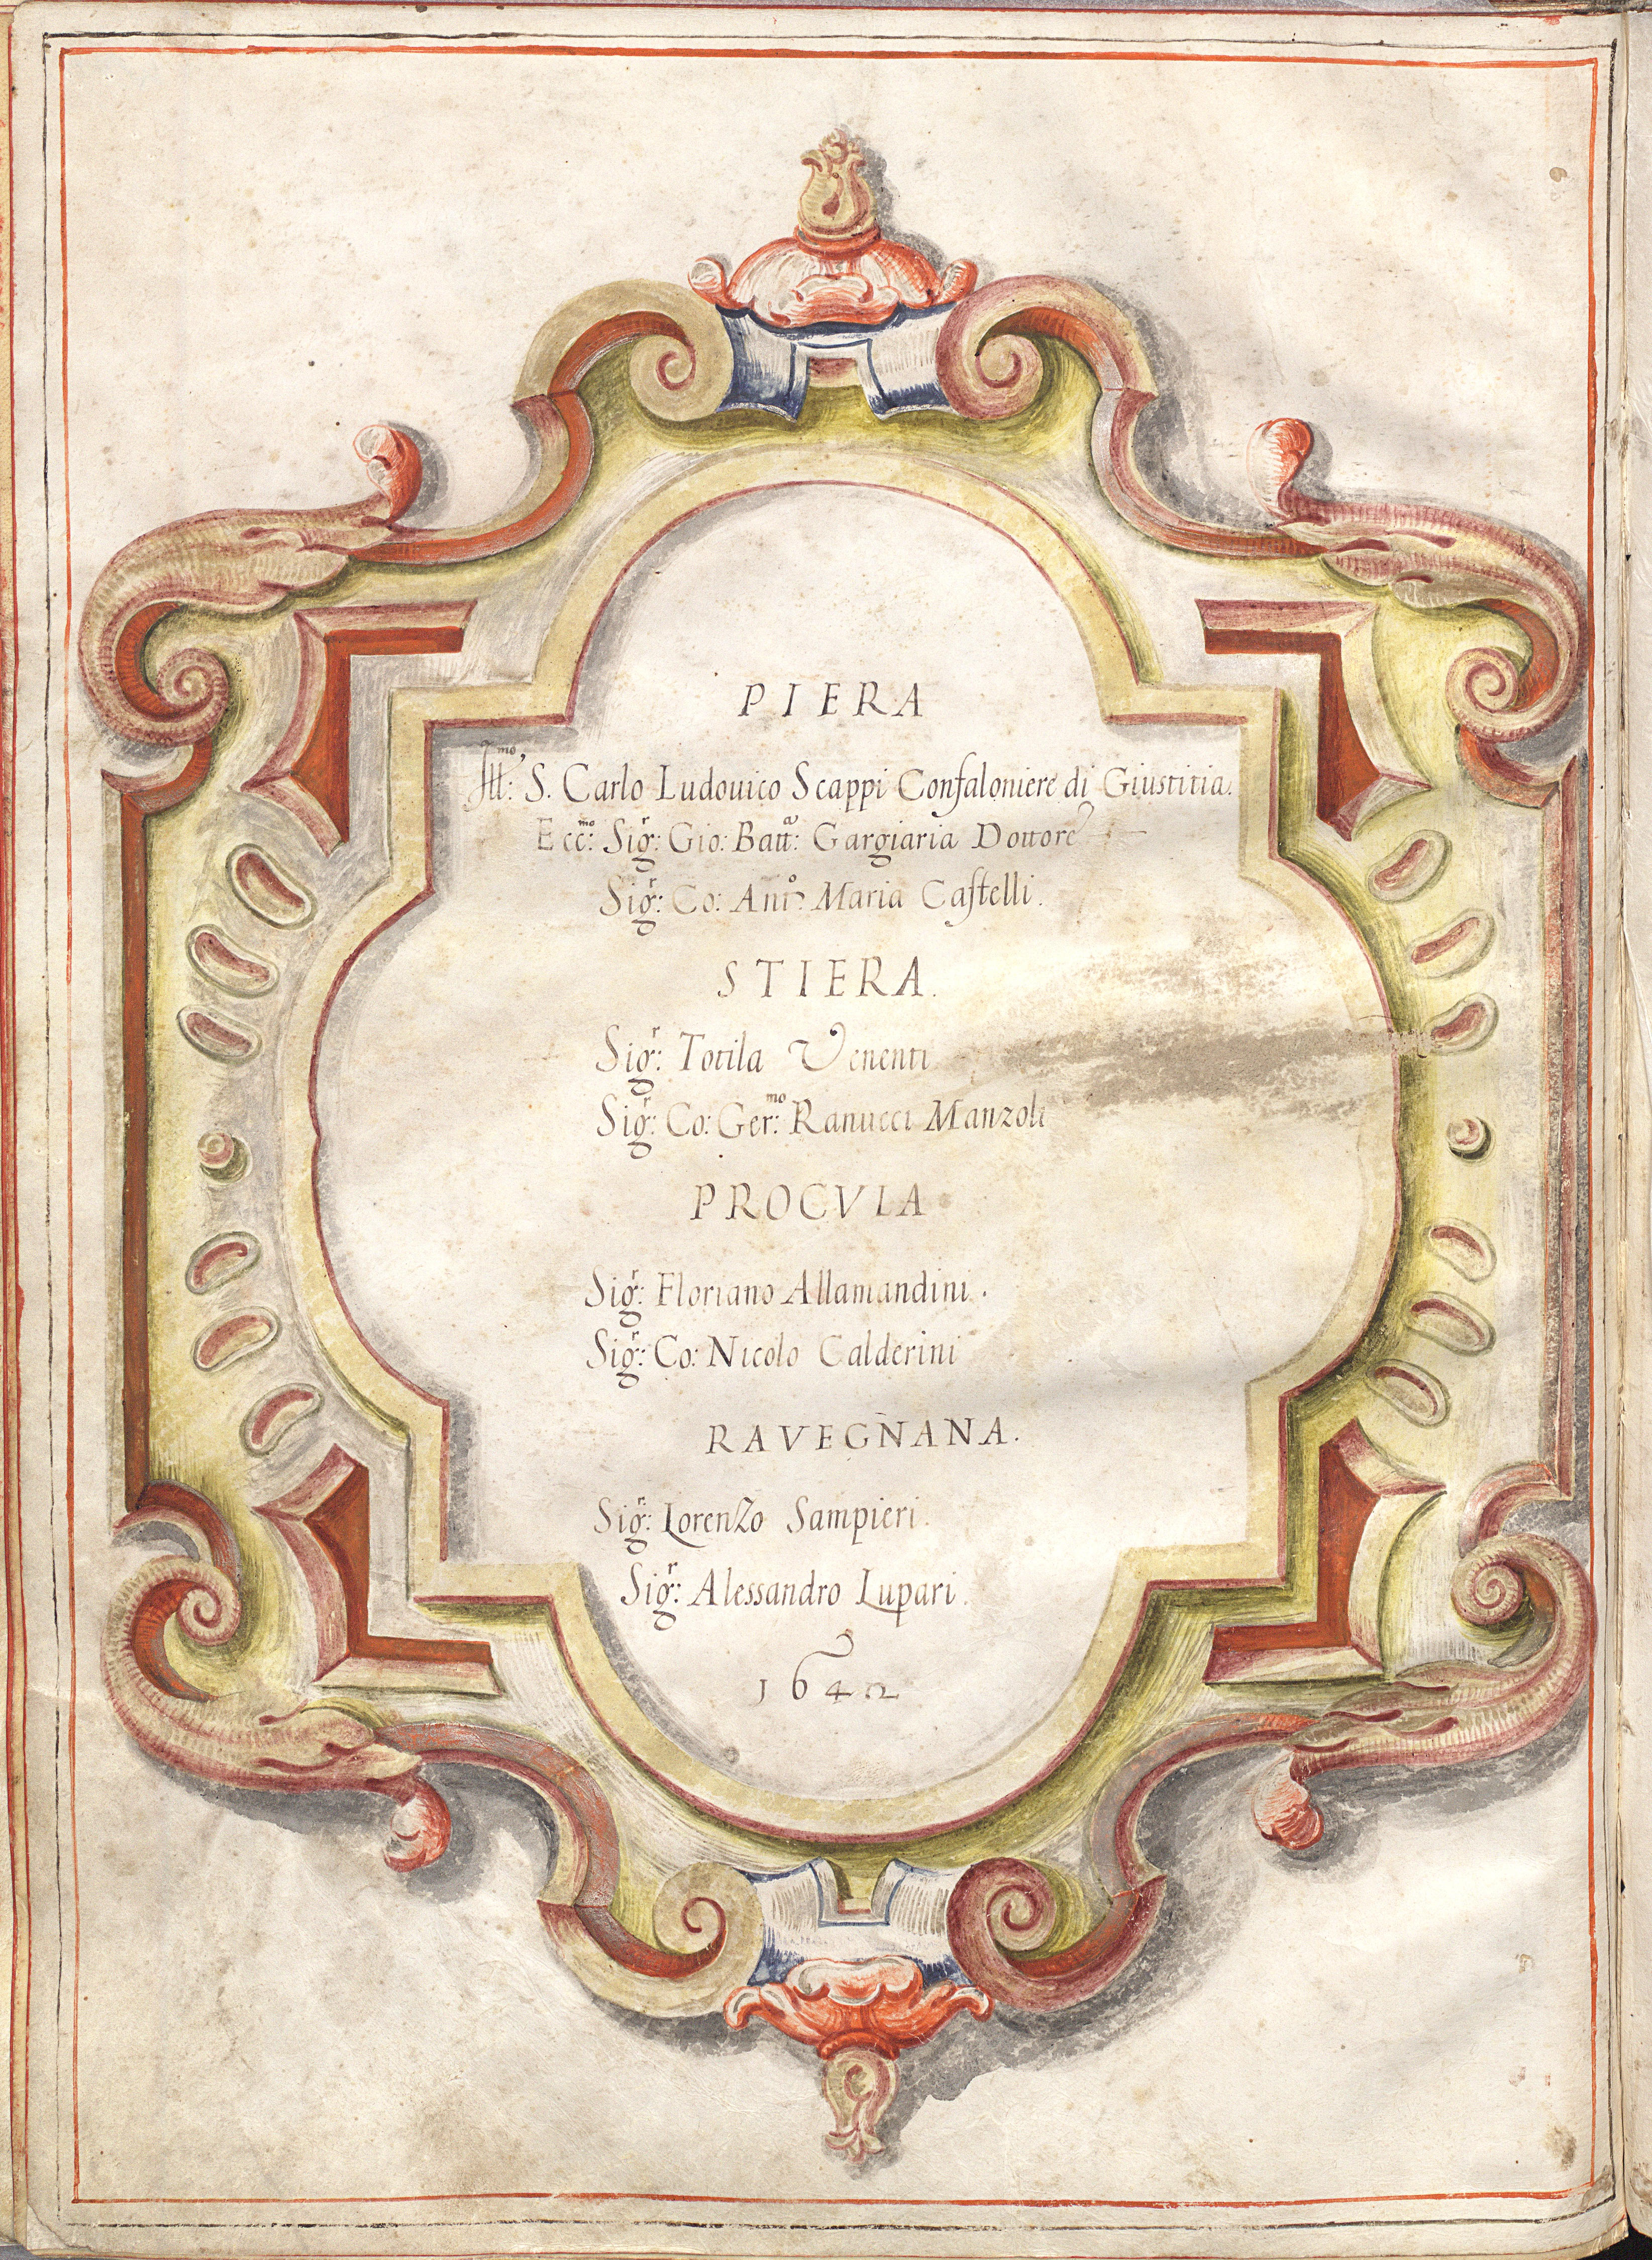 PIERA
Ill:mo S. Carlo Ludouico Scappi Confaloniere di Giustitia.
Ecc:mo Sig:r Gio: Batt:a Gargiaria Dottore
Sig:r Co: Ant:o Maria Castelli.
STIERA.
Sig:r Totila Venenti
Sig:r Co: Ger:mo Ranucci Manzoli
PROCVLA
Sig:r Floriano Allamandini.
Sig:r Co: Nicolo Calderini
RAVEGNANA.
Sig:r Lorenzo Sampieri.
Sig:r Alessandro Lupari.
1642